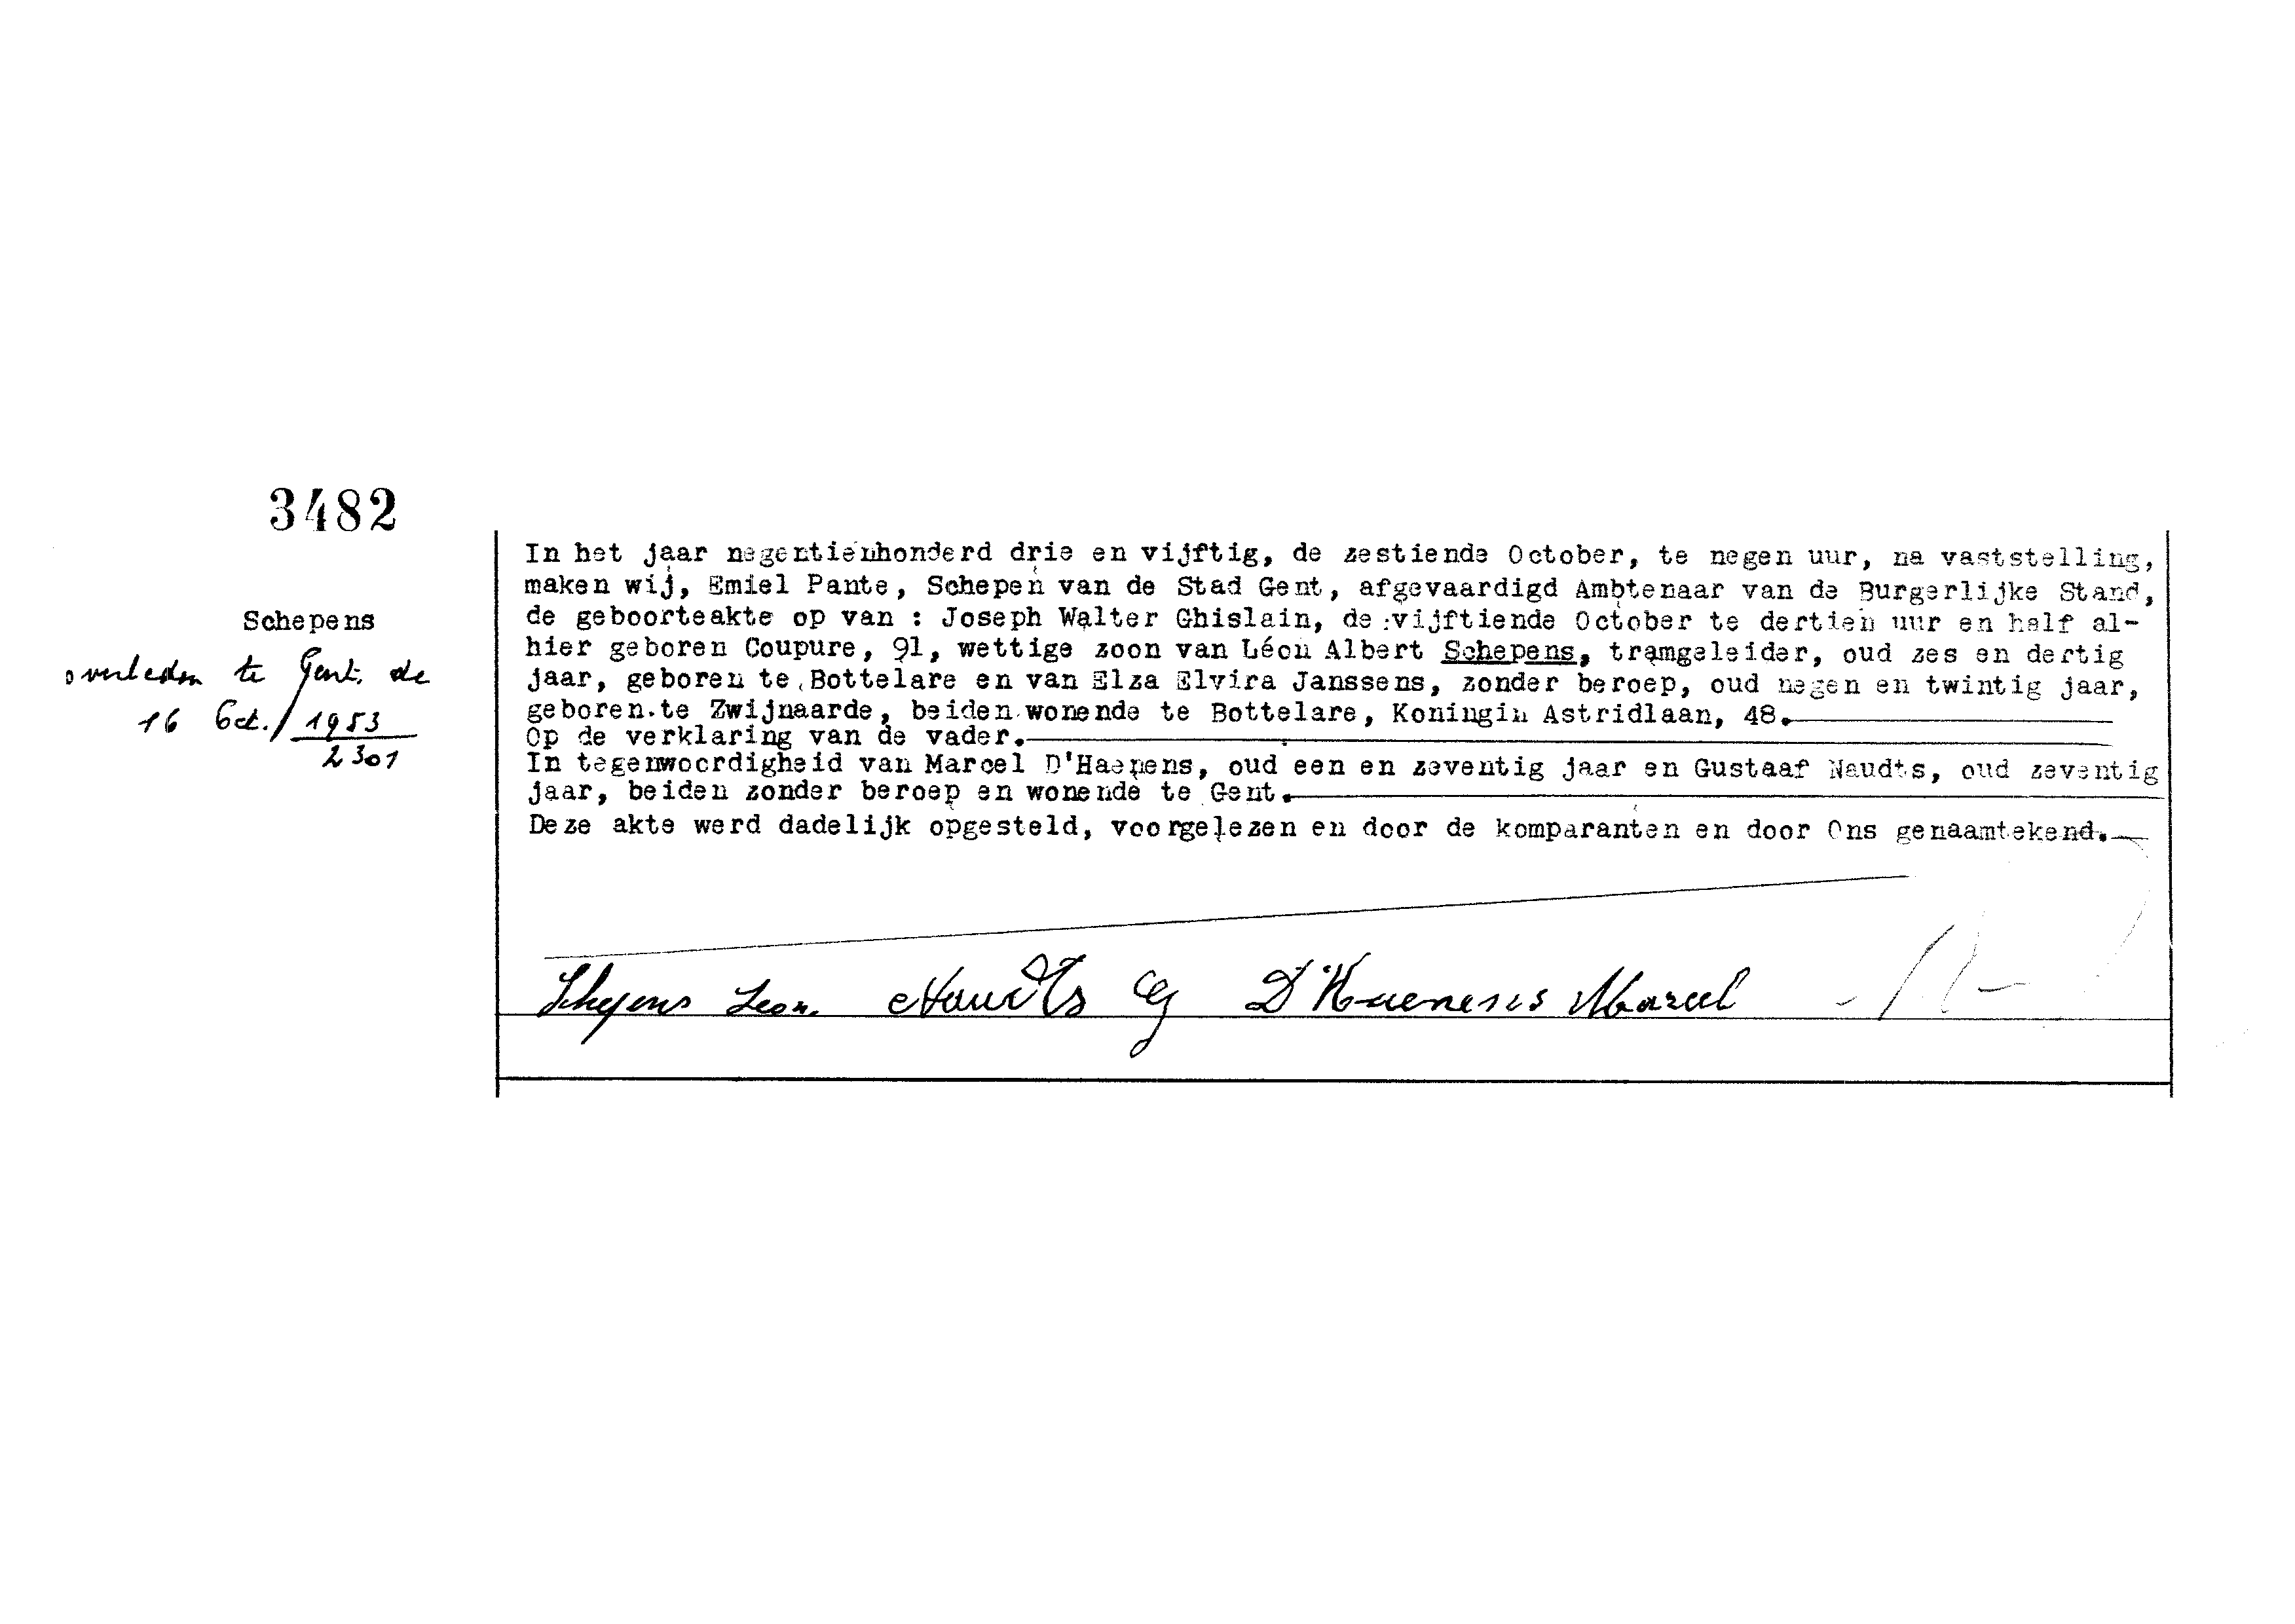 3482
Schepens
overleden te Gent. de
16 Oct./1953
2301
In het jaar negentienhonderd drie en vijftig, de zestiende October, te negen uur, na vaststelling,
maken wij, Emiel Pante, Schepen van de Stad Gent, afgevaardigd Ambtenaar van de Burgerlijke Stand,
de geboorteakte op van : Joseph Walter Ghislain, de vijftiende October te dertien uur en half al-
hier geboren Coupure, 91, wettige zoon van Léon Albert Schepens, tramgeleider, oud zes en dertig
jaar, geboren te Bottelare en van Elza Elvira Janssens, zonder beroep, oud negen en twintig jaar,
geboren te Zwijnaarde, beiden wonende te Bottelare, Koningin Astridlaan, 48.
Op de verklaring van de vader.
In tegenwoordigheid van Marcel D'Haenens, oud een en zeventig jaar en Gustaaf Naudts, oud zeventig
jaar, beiden zonder beroep en wonende te Gent.
Deze akte werd dadelijk opgesteld, voorgelezen en door de komparanten en door Ons genaamtekend.
Schepens Leon. Naudts G D'Haenens Marcel